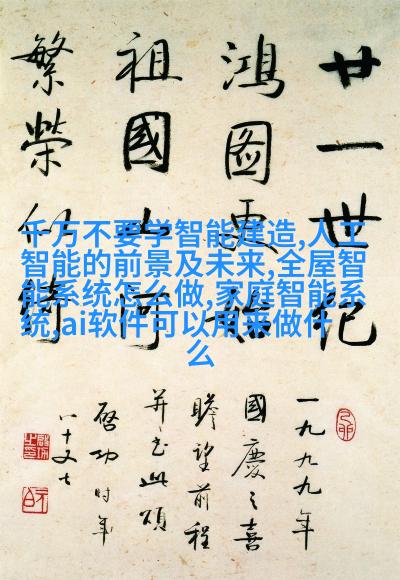 廿一世紀
鴻圖更始
祖國山河
繁榮似錦
千万不要学智能建造,人工
智能的前景及未来,全屋智
能系统怎么做,家庭智能系
统,ai软件可以用来做什
么
一九九九年
國慶之喜
瞻望前程
并书此頌
啓功时年
八十又七